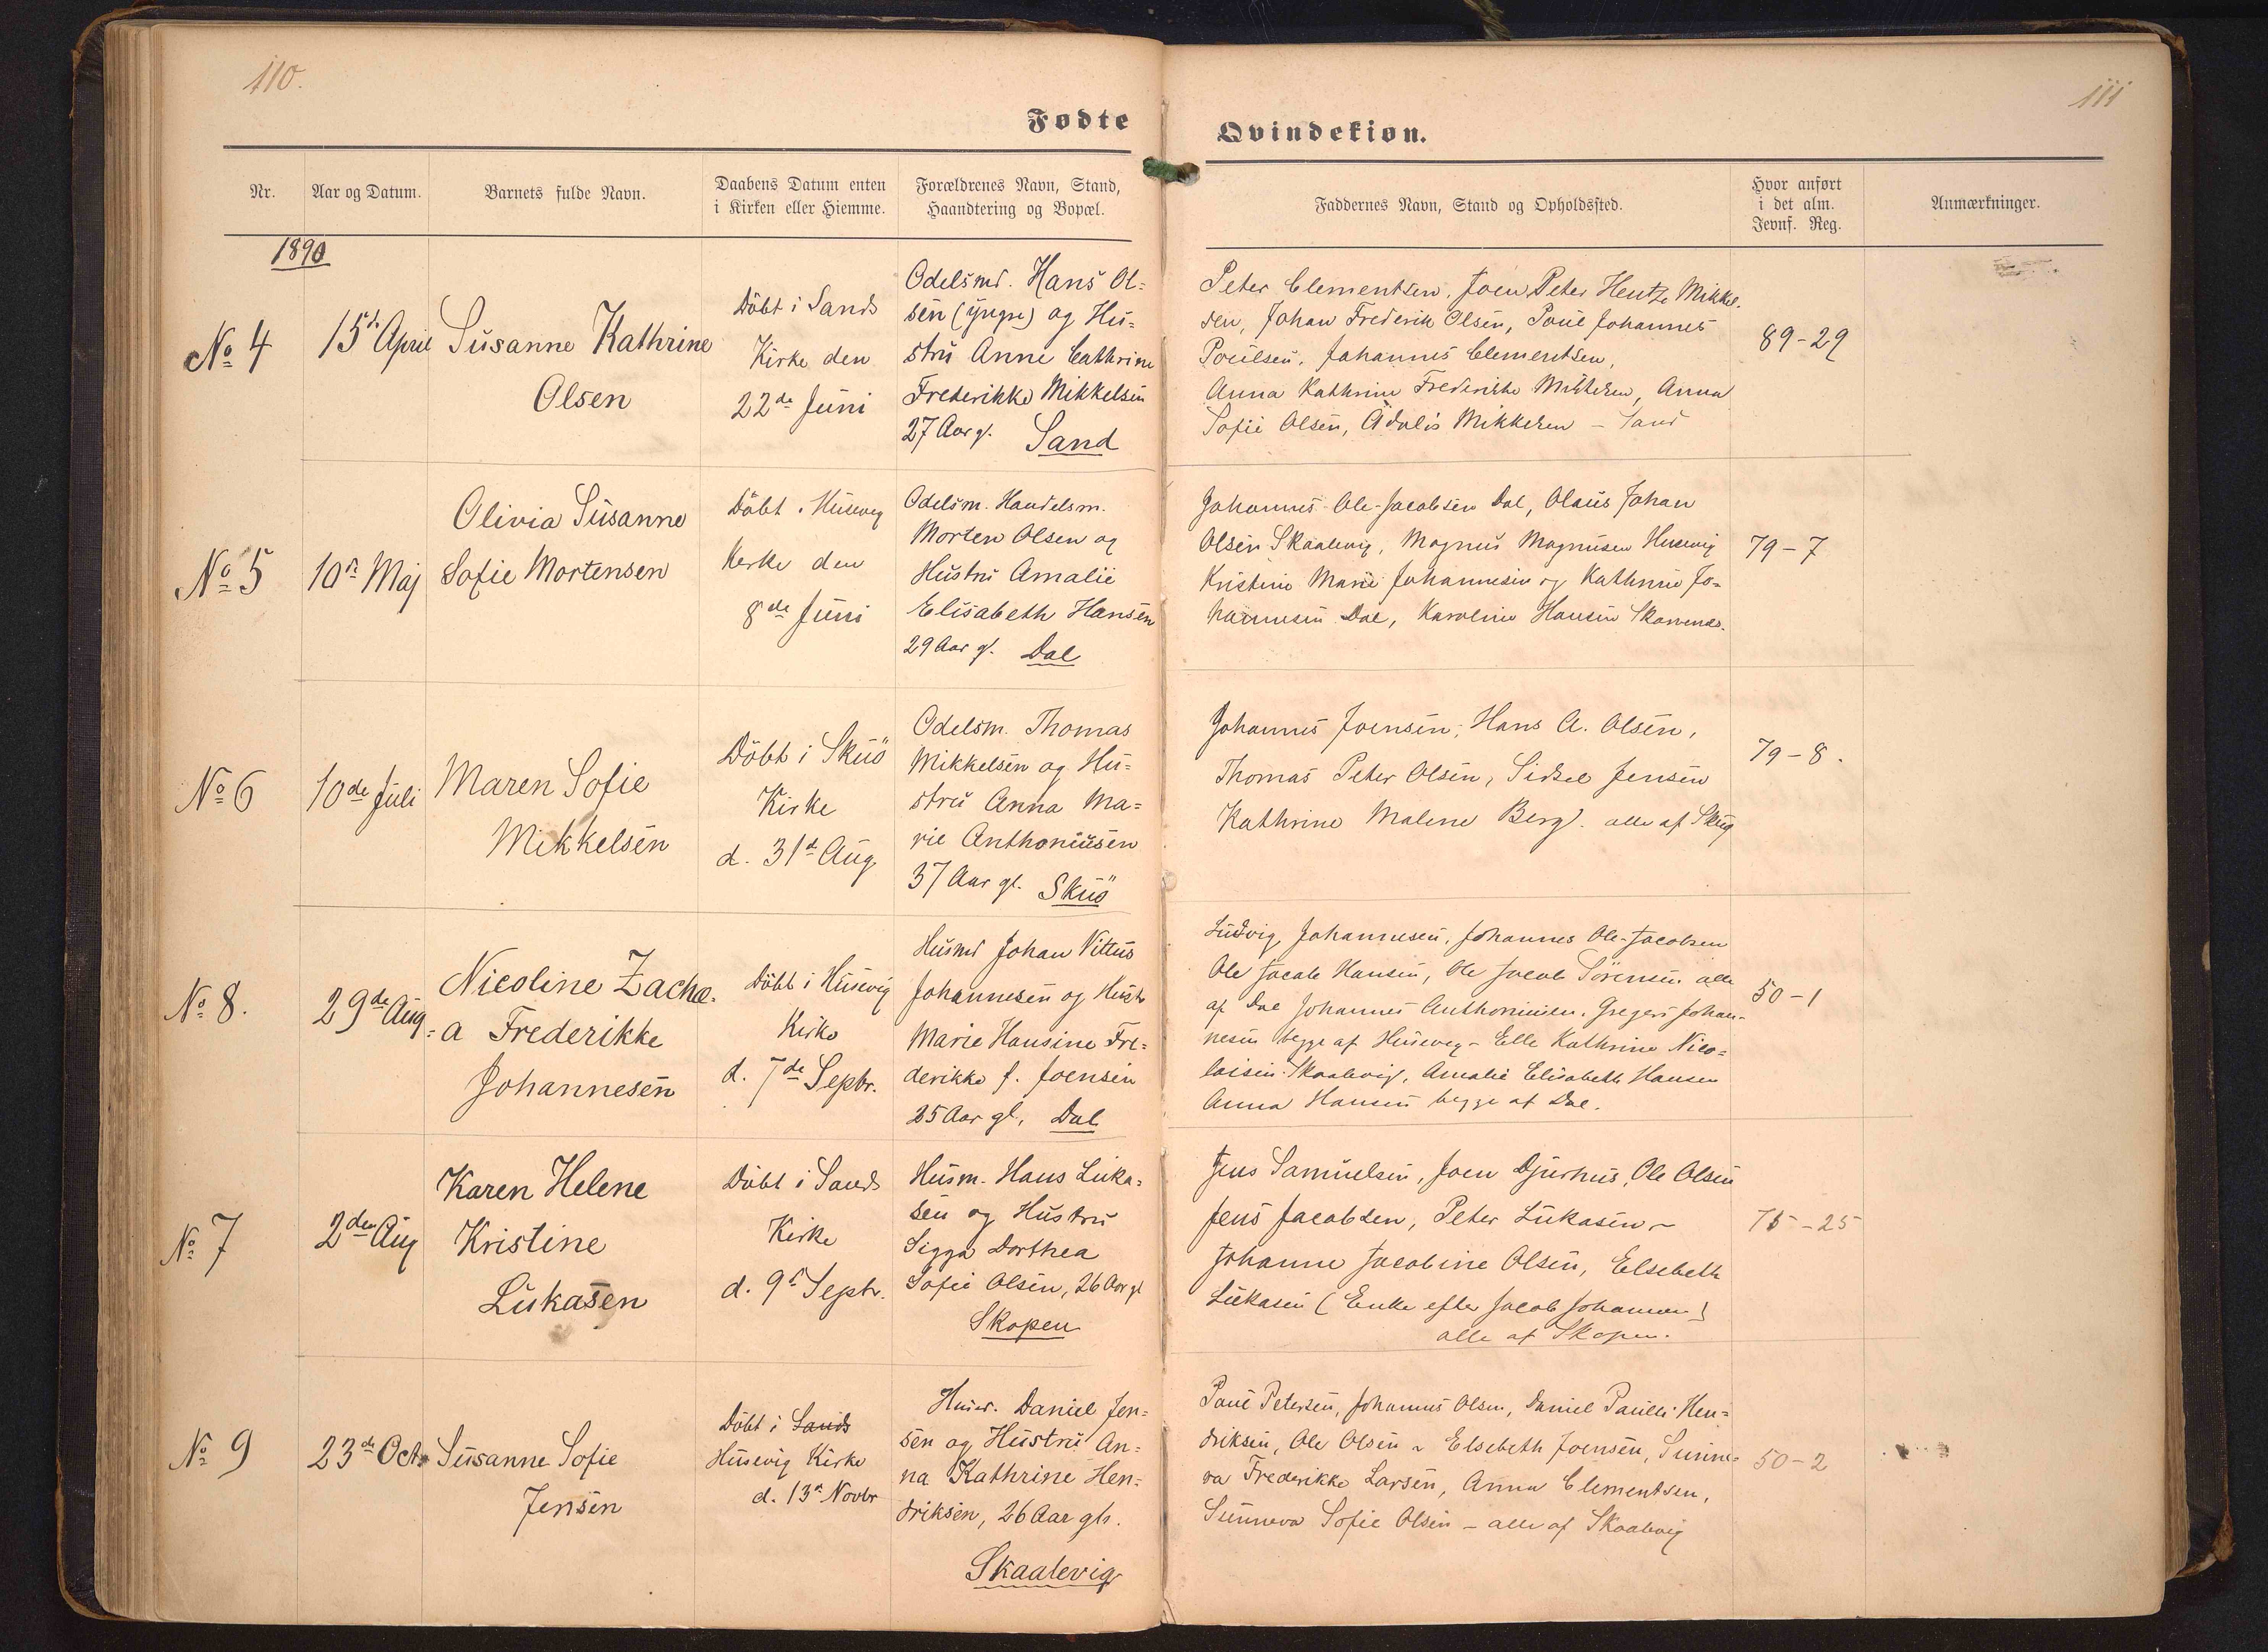 110.
111
Fødte
Qvindekiøn.
Nr.
Aar og Datum.
Barnets fulde Navn.
Daabens Datum enten
i Kirken eller Hiemme.
Forældrenes Navn, Stand,
Haandtering og Bopæl.
Faddernes Navn, Stand og Opholdssted.
Hvor anført
i det alm.
Jevnf. Reg.
Anmærkninger.
1890
No 4
15de April
Susanne Kathrine
Olsen
Döbt i Sands
Kirke den
22de Juni
Odelsmd. Hans Ol=
sen (yngre) og Hu=
stru Anne Cathrine
Frederikke Mikkelsen
27 Aar gl. Sand
Peter Clementsen, Joen Peter Hentze Mikkel-
sen, Johan Frederik Olsen, Poul Johannes
Poulsen, Johannes Clementsen,
Anna Kathrine Frederikke Mikkelsen, Anna
Sofie Olsen, Adolis Mikkelsen – Sand
89-29
No 5
10de Maj
Olivia Susanne
Sofie Mortensen
Döbt i Husevig
Kirke den
8de Juni
Odelsm. Handelsm.
Morten Olsen og
Hustru Amalie
Elisabeth Hansen
29 Aar gl. Dal
Johannes Ole-Jacobsen Dal, Olaus Johan
Olsen Skaalevig, Magnus Magnusen Husevig
Kristine Marie Johannesen og Kathrine Jo=
hannesen Dal, Karoline Hansen
79-7
No 6
10de Juli
Maren Sofie
Mikkelsen
Döbt i Skuö
Kirke
d. 31te Aug
Odelsm. Thomas
Mikkelsen og Hu=
stru Anna Ma=
rie Anthoniusen
37 Aar gl. Skuö
Johannes Joensen, Hans A. Olsen,
Thomas Peter Olsen, Sidsel Jensen
Kathrine Malene Berg. alle af Skuø
79-8.
No 8.
29de Aug.
Nicoline Zachæ=
a Frederikke
Johannesen
Döbt i Husevig
Kirke
d. 7de Septr.
Husmd Johan Vittus
Johannesen og Hustr
Marie Hansine Fre=
derikke f. Joensen
25 Aar gl, Dal
Ludvig Johannesen, Johannes Ole-Jacobsen
Ole Jacob Hansen, Ole Jacob Sörensen alle
af Dal Johannes Anthoniusen, Gregers Johan-
nesen begge af Husevig – Elle Kathrine Nico=
laisen Skaalevig, Amalie Elisabeth Hansen
Anna Hansen begge af Dal.
50-1
No 7
2den Aug
Karen Helene
Kristine
Lukasen
Döbt i Sands
Kirke
d. 9de Septr.
Husm. Hans Luka=
sen og Hustru
Sigga Dorthea
Sofie Olsen, 26 Aar gl
Skopen
Jens Samuelsen, Joen Djurhus, Ole Olsen
Jens Jacobsen, Peter Lukasen –
Johanne Jacobine Olsen, Elsebeth
Lukasen (Enke efter Jacob Johannesen)
alle af Skopen.
75-25
No 9
23de Octr
Susanne Sofie
Jensen
Döbt i Sands
Husevig Kirke
d. 13de Novbr
Husm. Daniel Jen=
sen og Hustru An=
na Kathrine Hen=
driksen, 26 Aar gl.
Skaalevig
Poul Petersen, Johannes Olsen, Daniel Paulli Hen=
driksen, Ole Olsen – Elsebeth Joensen, Sunne=
va Frederikke Larsen, Anna Clementsen,
Sunneva Sofie Olsen – alle af Skaalevig
50-2